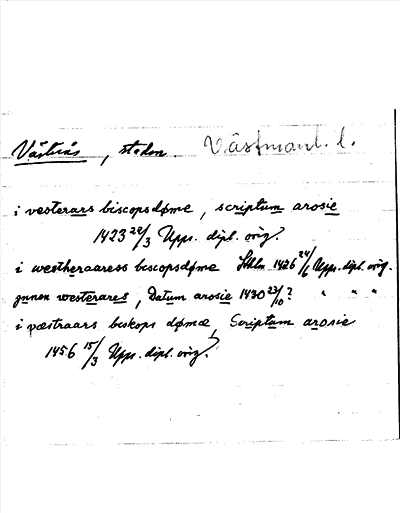 Västerås, staden. Västmanl. l.
i vesterars biscopsdøme, scriptum arosie
1423 22/3 Upps. dipl. orig.
i westheraaress biscopsdøme Sthlm 1426 24/6 Upps. dipl. orig.
jnnen westerares, Datum arosie 1430 23/10? " " "
i væstraars biskops dømæ, Scriptum arosie
1456 15/3 Upps. dipl. orig.